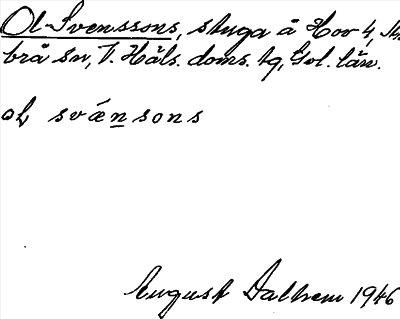 Ol Svenssons, stuga å Hov 4,
brå sn, V. Häls. doms. tg, Gol. län.
ol sväṉsons
August Dalhem 1946